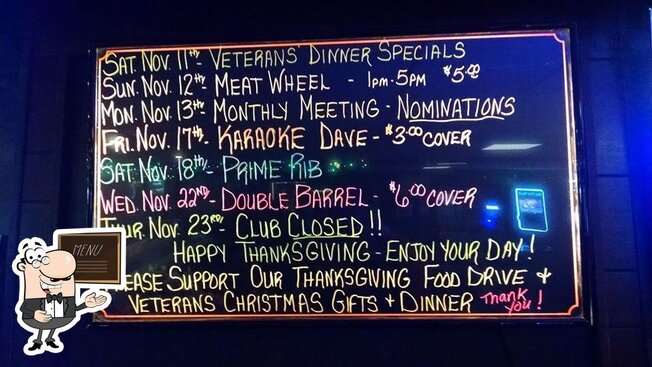 SAT. NOV. 11TH- VETERANS DINNER SPECIALS
SUN. NOV. 12TH- MEAT WHEEL - 1PM-5PM $5.00
MON. NOV. 13TH- MONTHLY MEETING - NOMINATIONS
FRI. NOV. 17TH- KARAOKE DAVE - $3.00 COVER
SAT NOV. 18TH- PRIME RIB
WED. NOV. 22ND- DOUBLE BARREL - $6.00 COVER
THUR. NOV. 23RD- CLUB CLOSED !!
HAPPY THANKSGIVING - ENJOY YOUR DAY!
SUPPORT OUR THANKSGIVING FOOD DRIVE +
VETERANS CHRISTMAS GIFTS + DINNER THANK YOU!
MENU